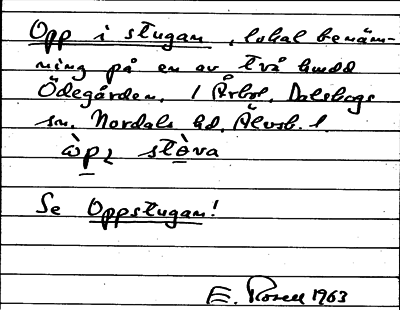 Opp i stugan, lokal benäm-
ning på en av två
Ödegården, i Ärbol, Dalskogs
sn. Nordals hd, Älvsb. l.
òpɩ stòva
Se Oppstugan!
E. Rosell 1963